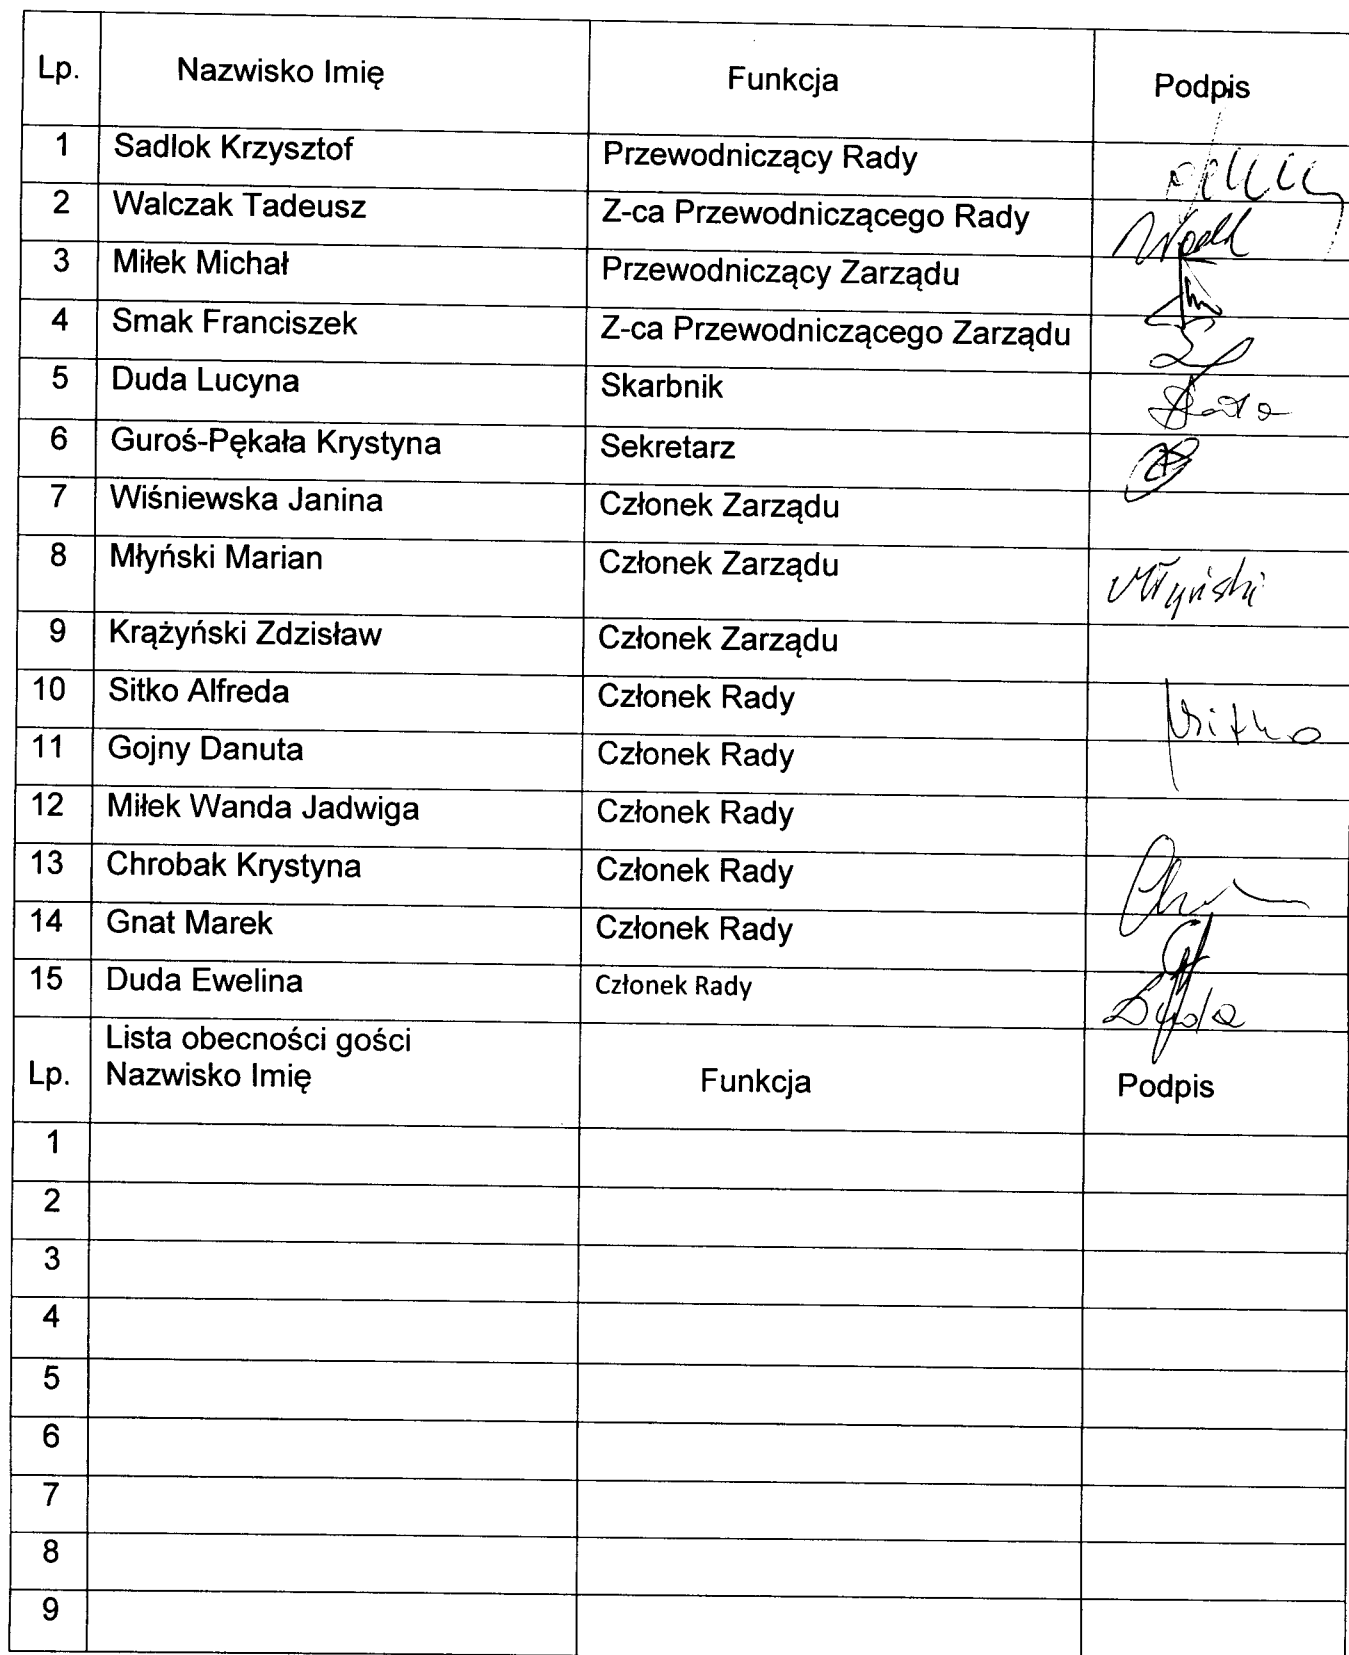 Lp. Nazwisko Imię Funkcja Podpis
1 Sadlok Krzysztof Przewodniczący Rady
2 Walczak Tadeusz Z-ca Przewodniczącego Rady
3 Miłek Michał Przewodniczący Zarządu
4 Smak Franciszek Z-ca Przewodniczącego Zarządu
5 Duda Lucyna Skarbnik
6 Guroś-Pękała Krystyna Sekretarz
7 Wiśniewska Janina Członek Zarządu
8 Młyński Marian Członek Zarządu Młyński
9 Krążyński Zdzisław Członek Zarządu
10 Sitko Alfreda Członek Rady Sitko
11 Gojny Danuta Członek Rady
12 Miłek Wanda Jadwiga Członek Rady
13 Chrobak Krystyna Członek Rady
14 Gnat Marek Członek Rady
15 Duda Ewelina Członek Rady Duda
Lista obecności gości
Lp. Nazwisko Imię Funkcja Podpis
1
2
3
4
5
6
7
8
9